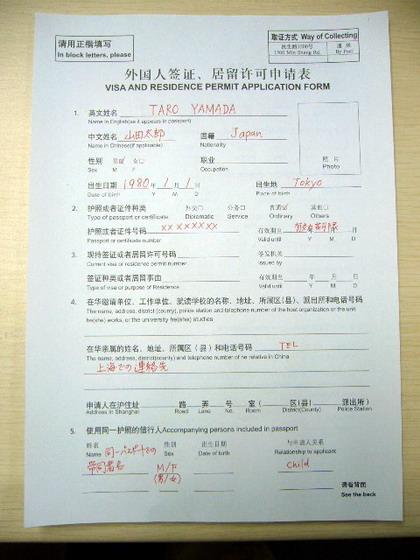 请用正楷填写
In block letters, please
取证方式 Way of Collecting
民生路1500号
1500 Min Sheng Rd.
速递
By Post
外国人签证、居留许可申请表
VISA AND RESIDENCE PERMIT APPLICATION FORM
1. 英文姓名 TARO YAMADA
Name in English(as it appears in passport)
中文姓名 山田太郎 国籍 Japan
Name in Chinese(if applicable) Nationality
性别 男 女 职业
Sex M F Occupation
照片
Photo
出生日期 1980年 1月 1日 出生地 Tokyo
Date of birth Y M D Place of birth
2. 护照或者证件种类 外交 公务 普通 其他
Type of passport or certificate Diplomatic Service Ordinary Others
护照或者证件号码 XXXXXXXX 有效期至 有効期限 日
Passport or certificate number Valid until Y M D
3. 现持签证或者居留许可号码 签发机关
Current visa or residence permit number Issued by
签证种类或者居留事由 有效期至 年 月 日
Type of visa or purpose of Residence Valid until Y M D
4. 在华邀请单位、工作单位、就读学校的名称、地址、所属区(县)、派出所和电话号码
The name, address, district (county), police station and telephone number of the host organization or the unit
he(she) works, or the university he(she) studies
在华亲属的姓名、地址、所属区(县)和电话号码 TEL
The name, address, district(county) and telephone number of he relative in China
上海での連絡先
申请人在沪住址 路 弄 号 室( 区(县) 派出所)
Address in Shanghai Road Lane No. Room District(County) Police Station
5. 使用同一护照的偕行人Accompanying persons included in passport
姓名 性别 出生日期 与申请人关系
Name 同一パスポートの Sex Date of Birth Relationship to applicant
帯同者名 M/F child
(男/女)
请看背面
See the back